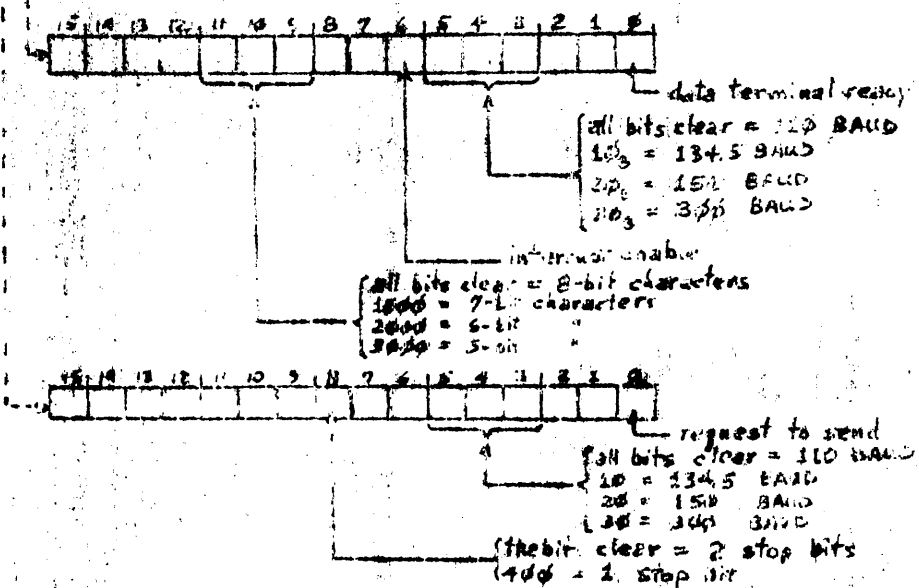 15 14 13 12 11 10 9 8 7 6 5 4 3 2 1 0
data terminal ready
all bits clear = 110 BAUD
10 = 134.5 BAUD
20 = 150 BAUD
= 300 BAUD
interrupt enable
all bits clear = 8-bit characters
1000 = 7-bit characters
2000 = 6-bit "
3000 = 5-bit "
15 14 13 12 11 10 9 8 7 6 5 4 3 2 1 0
request to send
all bits clear = 110 BAUD
10 = 134.5 BAUD
20 = 150 BAUD
30 = 300 BAUD
the bit clear = 2 stop bits
400 = 1 stop bit